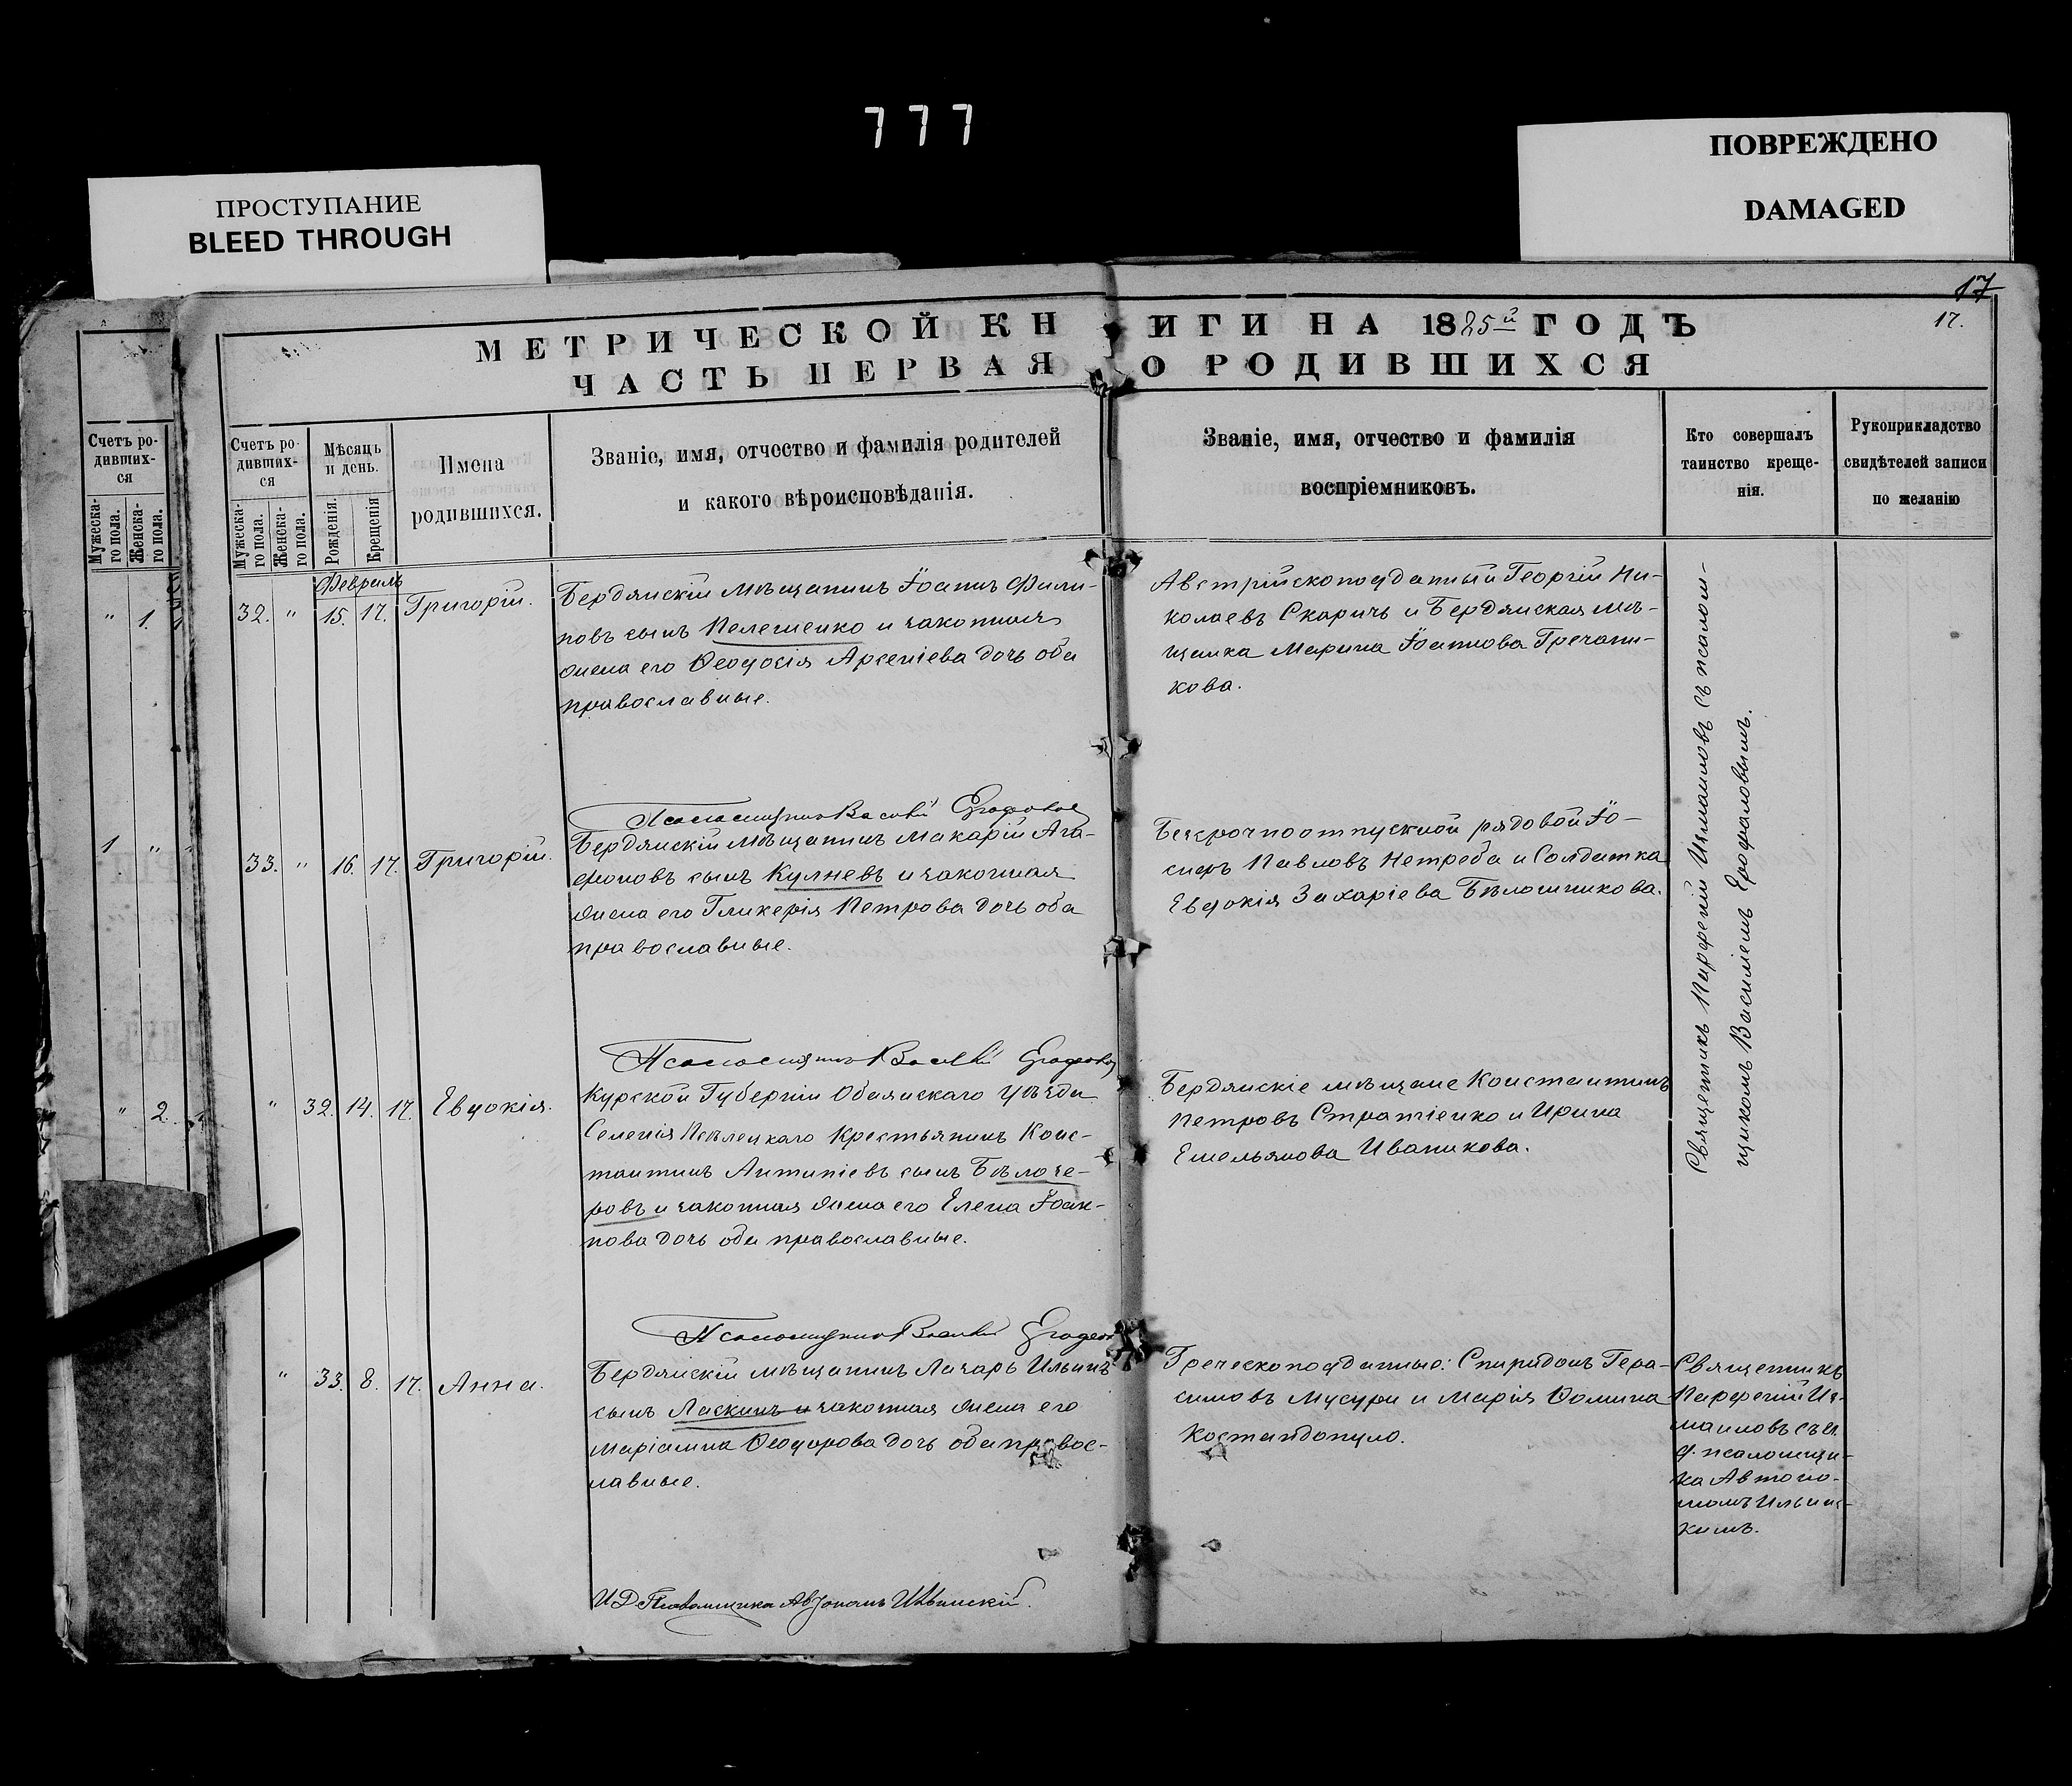 777
ПРОСТУПАНИЕ
BLEED THROUGH
ПОВРЕЖДЕНО
DAMAGED
17
17.
МЕТРИЧЕСКОЙ КНИГИ НА 1885й ГОДЪ
ЧАСТЬ ПЕРВАЯ О РОДИВШИХСЯ
Счетъ ро-
дившихх-
ся
Мужеска-
го пола.
Женска-
го пола.
" 1.
1 "
" 2.
Счетъ ро-
дившихх-
ся
Мужеска-
го пола.
Женска-
го пола.
Мѣсяцъ
и день.
Рожденія.
Крещенія
Имена
родившихся.
Званіе, имя, отчество и фамилія родителей
и какого вѣроисповѣданія.
Званіе, имя, отчество и фамилія
воспріемниковъ.
Кто совершалъ
таинство креще-
нія.
Рукоприкладство
свидѣтелей записи
по желанію
Февраль
32. " 15. 17. Григорій.
Бердянскій мѣщанинъ Іоаннъ Фили-
повъ сынъ Пелешенко и законная
жена его Ѳеодосія Арсеніева дочь оба
православные.
Австрійскоподданный Георгій Ни-
колаевъ Скаричъ и Бердянская мѣ-
щанка Марина Іоаннова Гречани-
кова.
Псаломщикъ Василій
33. " 16. 17. Григорій.
Бердянскій мѣщанинъ Макарій Ага-
фоновъ сынъ Кулневъ и законная
жена его Гликерія Петрова дочь оба
православные.
Безсрочноотпускной рядовой Іо-
сифъ Павловъ Нетреба и Солдатка
Евдокія Захаріева Бѣлошникова.
Псаломщикъ Василій
" 32. 14. 17. Евдокія.
Курской Губерніи Обаянскаго Уѣзда
Селенія Пселецкаго Крестьянинъ Конс-
тантинъ Антипіевъ сынъ Бѣлозе-
ровъ и законная жена его Елена Іоан-
нова дочь оба православные.
Бердянскіе мѣщане Константинъ
Петровъ Стратіенко и Ирина
Емельянова Иваникова.
Священникъ Парфеній Измаиловъ съ псалом-
щикомъ Василіемъ Ерофаловымъ.
Псаломщикъ Василій
" 33. 8. 17. Анна.
Бердянскій мѣщанинъ Лазарь Ильинъ
сынъ Ласкинъ и законная жена его
Маріамна Ѳеодорова дочь оба правос-
лавные.
Греческоподданные: Спиридонъ Гера-
симовъ Мусури и Марія Ѳомина
Костандопуло.
Священникъ
Парфеній Из-
маиловъ съ и.
д. псаломщи-
ка Автоно-
момъ Ильинс-
кимъ.
И.Д. Псаломщика Автономъ Ильинскій.